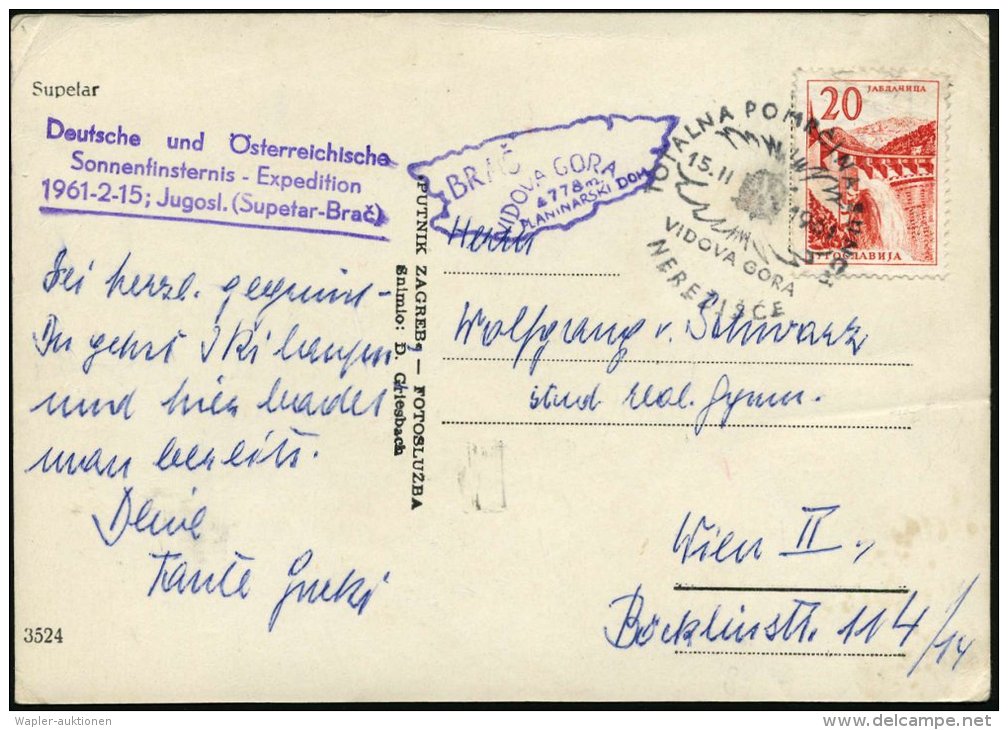 Supetar
Deutsche und Österreichische
Sonnenfinsternis - Expedition
1961-2-15; Jugosl. (Supetar-Brač)
BRAČ
VIDOVA GORA
778 m.
PLANINARSKI DOM
TOTALNA POMRČINA SUNCA
15.II
1961
VIDOVA GORA
NEREŽIŠĆE
20
ЈАБЛАНИЦА
ЈУГОСЛАВИЈА
"PUTNIK ZAGREB" — FOTOSLUŽBA
Snimio: D. Griesbach
Sei herzl. gegrüsst -
Du gehst Ski laufen
und hier badet
man bereits.
Deine
Tante
Herrn
Wolfgang v. Schwarz
stud. real. Gymn.
Wien II.,
Böcklinstr. 114/14
3524
Wapler-auktionen
www.delcampe.net